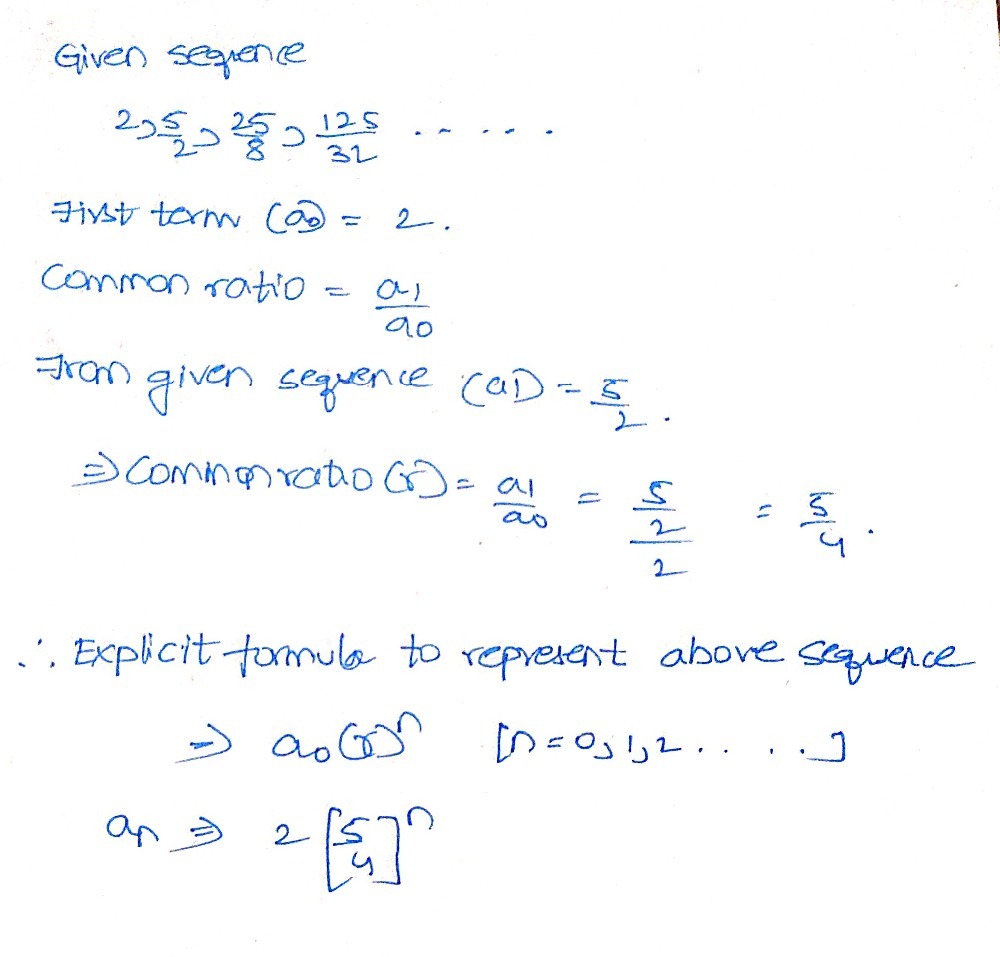 Given sequence
2, 5/2, 25/8, 125/32 ......
First term (a0) = 2.
Common ratio = a1/a0
From given sequence (a1) = 5/2.
⇒ Common ratio (r) = a1/a0 = (5/2)/2 = 5/4.
∴ Explicit formula to represent above sequence
⇒ a0(r)^n [n = 0, 1, 2 .....]
an ⇒ 2[5/4]^n